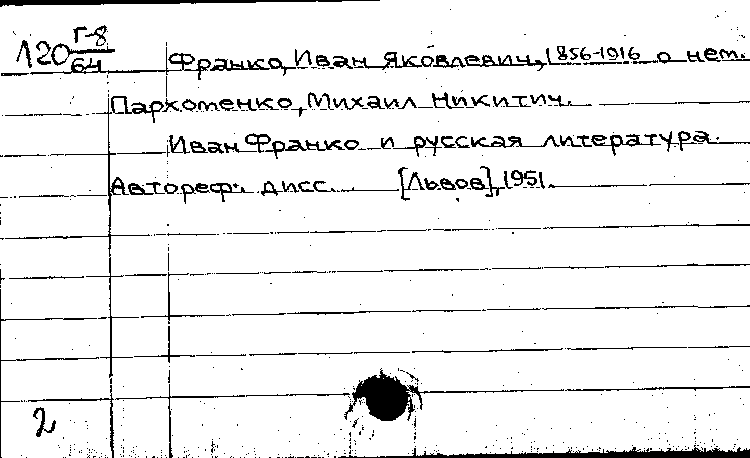 120 Г-8/64
Франко, Иван Яковлевич, 1856-1916 о нем.
Пархоменко, Михаил Никитич.
Иван Франко и русская литература.
Автореф. дисс. [Львов], 1951.
2